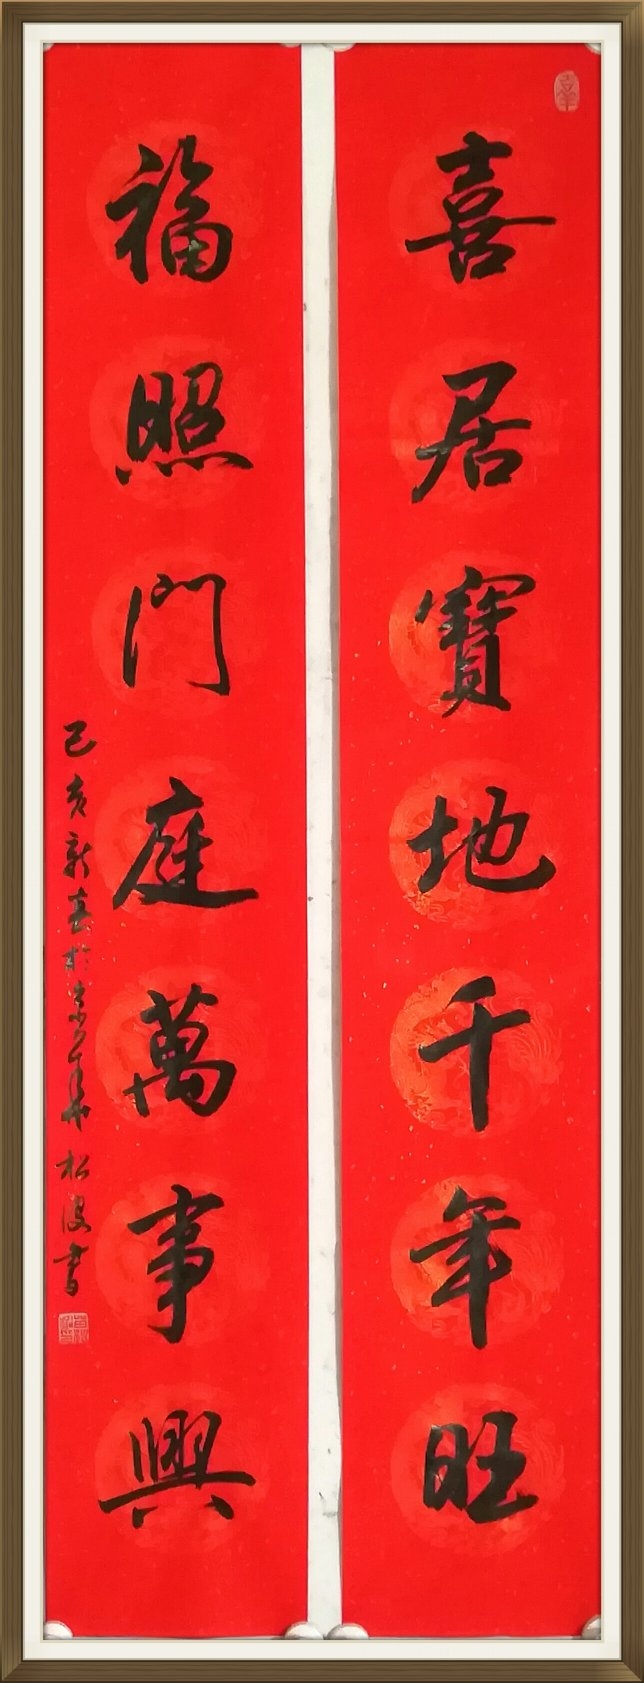 喜居寶地千年旺
福照門庭萬事興
己亥新春於京華松波書